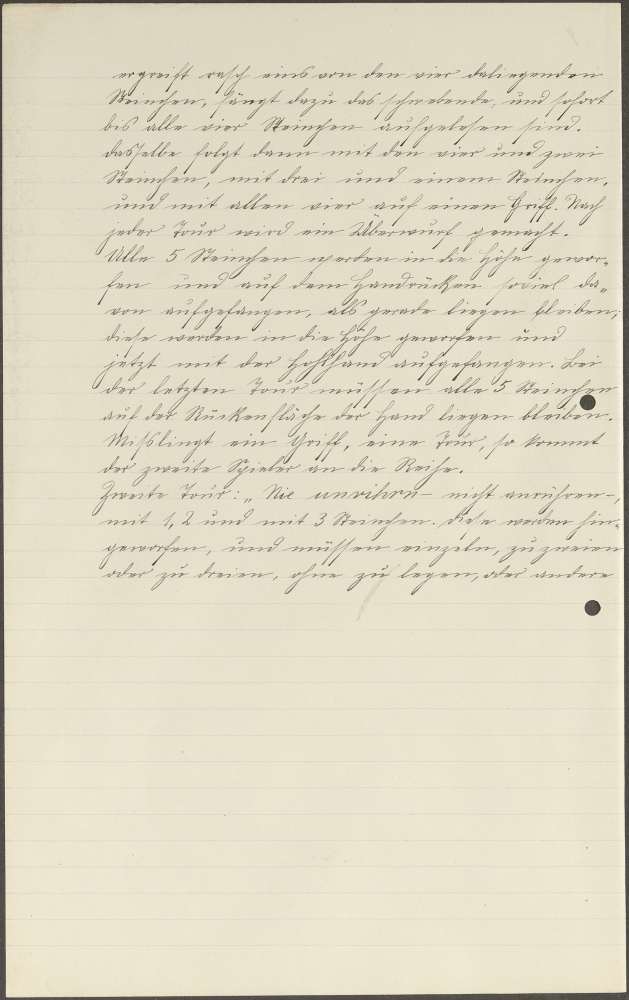 ergreift rasch eins von den vier daliegenden
Steinchen, fängt dazu das schwebende, und sofort
bis alle vier Steinchen aufgelesen sind.
dasselbe folgt dann mit den vier und zwei
Steinchen, mit drei und einem Steinchen,
und mit allen vier auf einen Griff. Nach
jeder Tour wird ein Überwurf gemacht.
Alle 5 Steinchen werden in die Höhe gewor=
fen und auf dem Handrücken soviel da=
von aufgefangen, als gerade liegen bleiben;
diese werden in die Höhe geworfen und
jetzt mit der Hohlhand aufgefangen. Bei
der letzten Tour müssen alle 5 Steinchen
auf der Rückenfläche der Hand liegen bleiben.
Misslingt ein Griff, eine Tour, so kommt
der zweite Spieler an die Reihe.
Zweite Tour: „ Nie - nicht anrühren -,
mit 1, 2 und mit 3 Steinchen. Diese werden hin=
geworfen, und müssen einzeln, zu zweien
oder zu dreien, ohne zu legen, oder andere